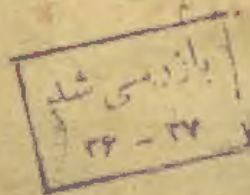 بازرسی شد
۳۶ - ۳۷